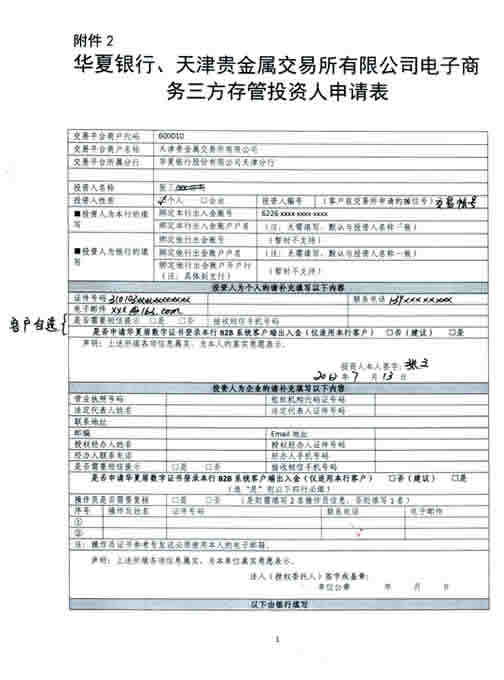 附件 2
华夏银行、天津贵金属交易所有限公司电子商
务三方存管投资人申请表
交易平台商户代码 600010
交易平台商户名称 天津贵金属交易所有限公司
交易平台所属分行 华夏银行股份有限公司天津分行
投资人名称 张三
投资人性质 个人 □企业 投资人编号 (客户在交易所申请的摊位号) 交易账号
■投资人为本行的填写 绑定本行出入金账号 6226 xxxx xxxx xxxx
绑定本行出入金账户户名 (注：无需填写，默认与投资人名称一致)
■投资人为他行的填写 绑定他行出金账号 (暂时不支持)
绑定他行出金账户户名 (注：无需填写，默认与投资人名称一致)
绑定他行出金账户开户行 (暂时不支持)
(注：具体到支行)
投资人为个人的请补充填写以下内容
证件号码 310103xxxxxxxxxxxx 联系电话 139xxxxxxxx
电子邮件 xyz@163.com
客户自选
是否需要短信提示 □是 □否 接收短信手机号码
是否申请华夏盾数字证书登录本行 B2B 系统客户端出入金（仅适用本行客户） □否（建议） □是
声明：上述所填各项信息属实，为本人的真实意愿表示。
投资人本人签字：张三
2012年 7 月 13 日
投资人为企业的请补充填写以下内容
营业执照号码 组织机构代码证号码
法定代表人姓名 法定代表人证件号码
联系地址
邮编 Email 地址
授权经办人姓名 授权经办人证件号码
经办人联系电话 经办人手机号码
是否需要短信提示 □是 □否 接收短信手机号码
是否申请华夏盾数字证书登录本行 B2B 系统客户端出入金（仅适用本行客户） □否（建议） □是
(选“是”则以下四行必填)
操作员是否需要复核 □是 □否 (是则需填写 2 名操作员信息，否则填写 1 名)
序号 操作员姓名 证件号码 联系电话 电子邮件
①
②
注：操作员证书参考号发送必须使用本人的电子邮箱。
声明：上述所填各项信息属实，为本单位真实意愿表示。
法人（授权委托人）签字或盖章：
单位公章 年 月 日
以下由银行填写
1